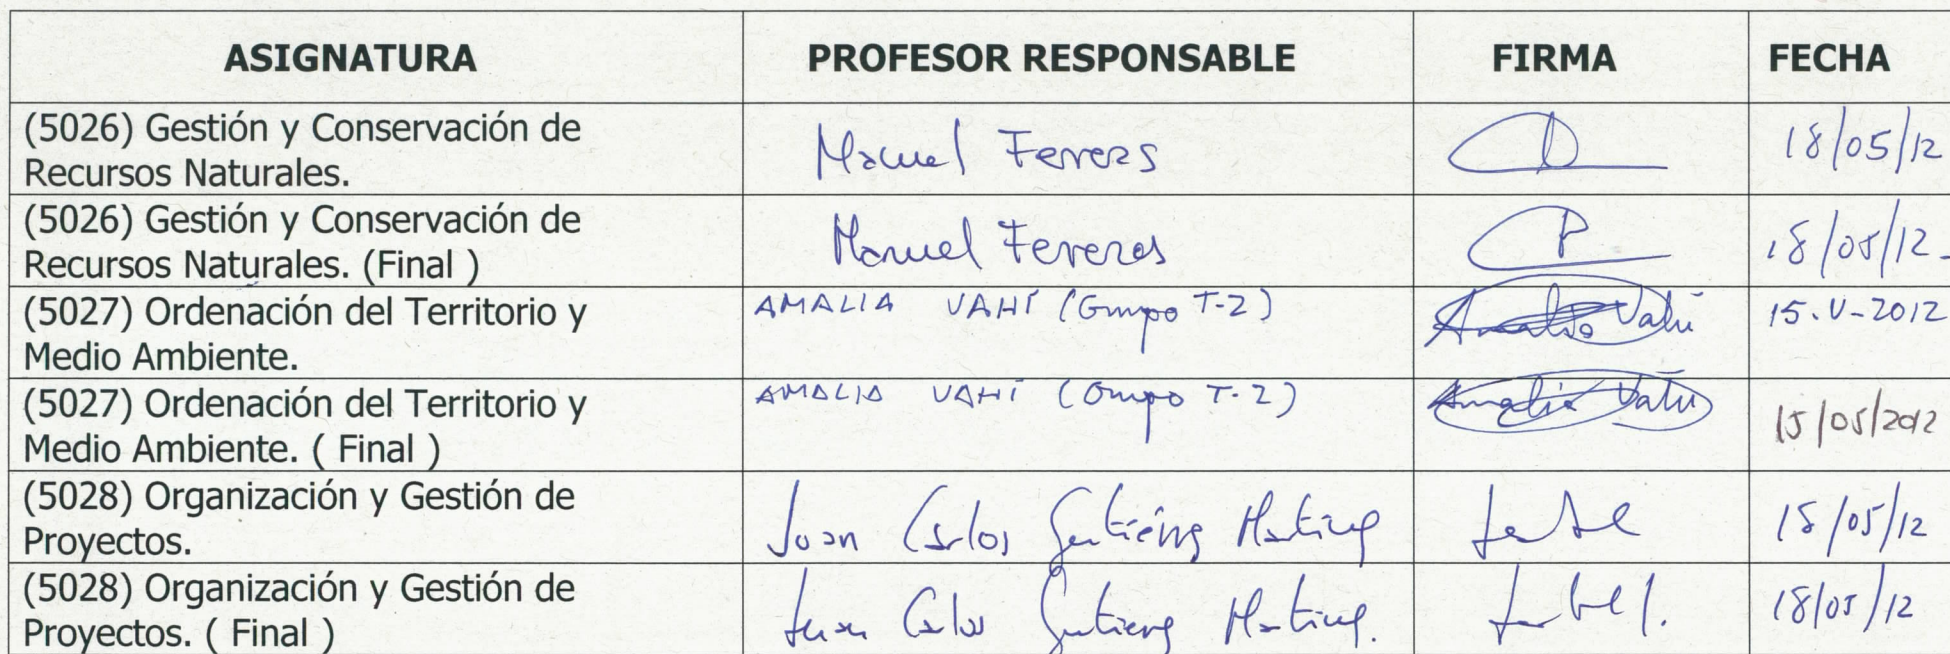 ASIGNATURA PROFESOR RESPONSABLE FIRMA FECHA
(5026) Gestión y Conservación de
Recursos Naturales.
Manuel Ferreras 18/05/12
(5026) Gestión y Conservación de
Recursos Naturales. (Final )
Manuel Ferreras 18/05/12
(5027) Ordenación del Territorio y
Medio Ambiente.
AMALIA VAHÍ (Grupo T-2) Amalia Vahí 15-V-2012
(5027) Ordenación del Territorio y
Medio Ambiente. ( Final )
AMALIA VAHÍ (Grupo T-2) Amalia Vahí 15/05/2012
(5028) Organización y Gestión de
Proyectos.
Juan Carlos Gutiérrez Martínez /05/12
(5028) Organización y Gestión de
Proyectos. ( Final )
Juan Carlos Gutiérrez Martínez. 18/05/12